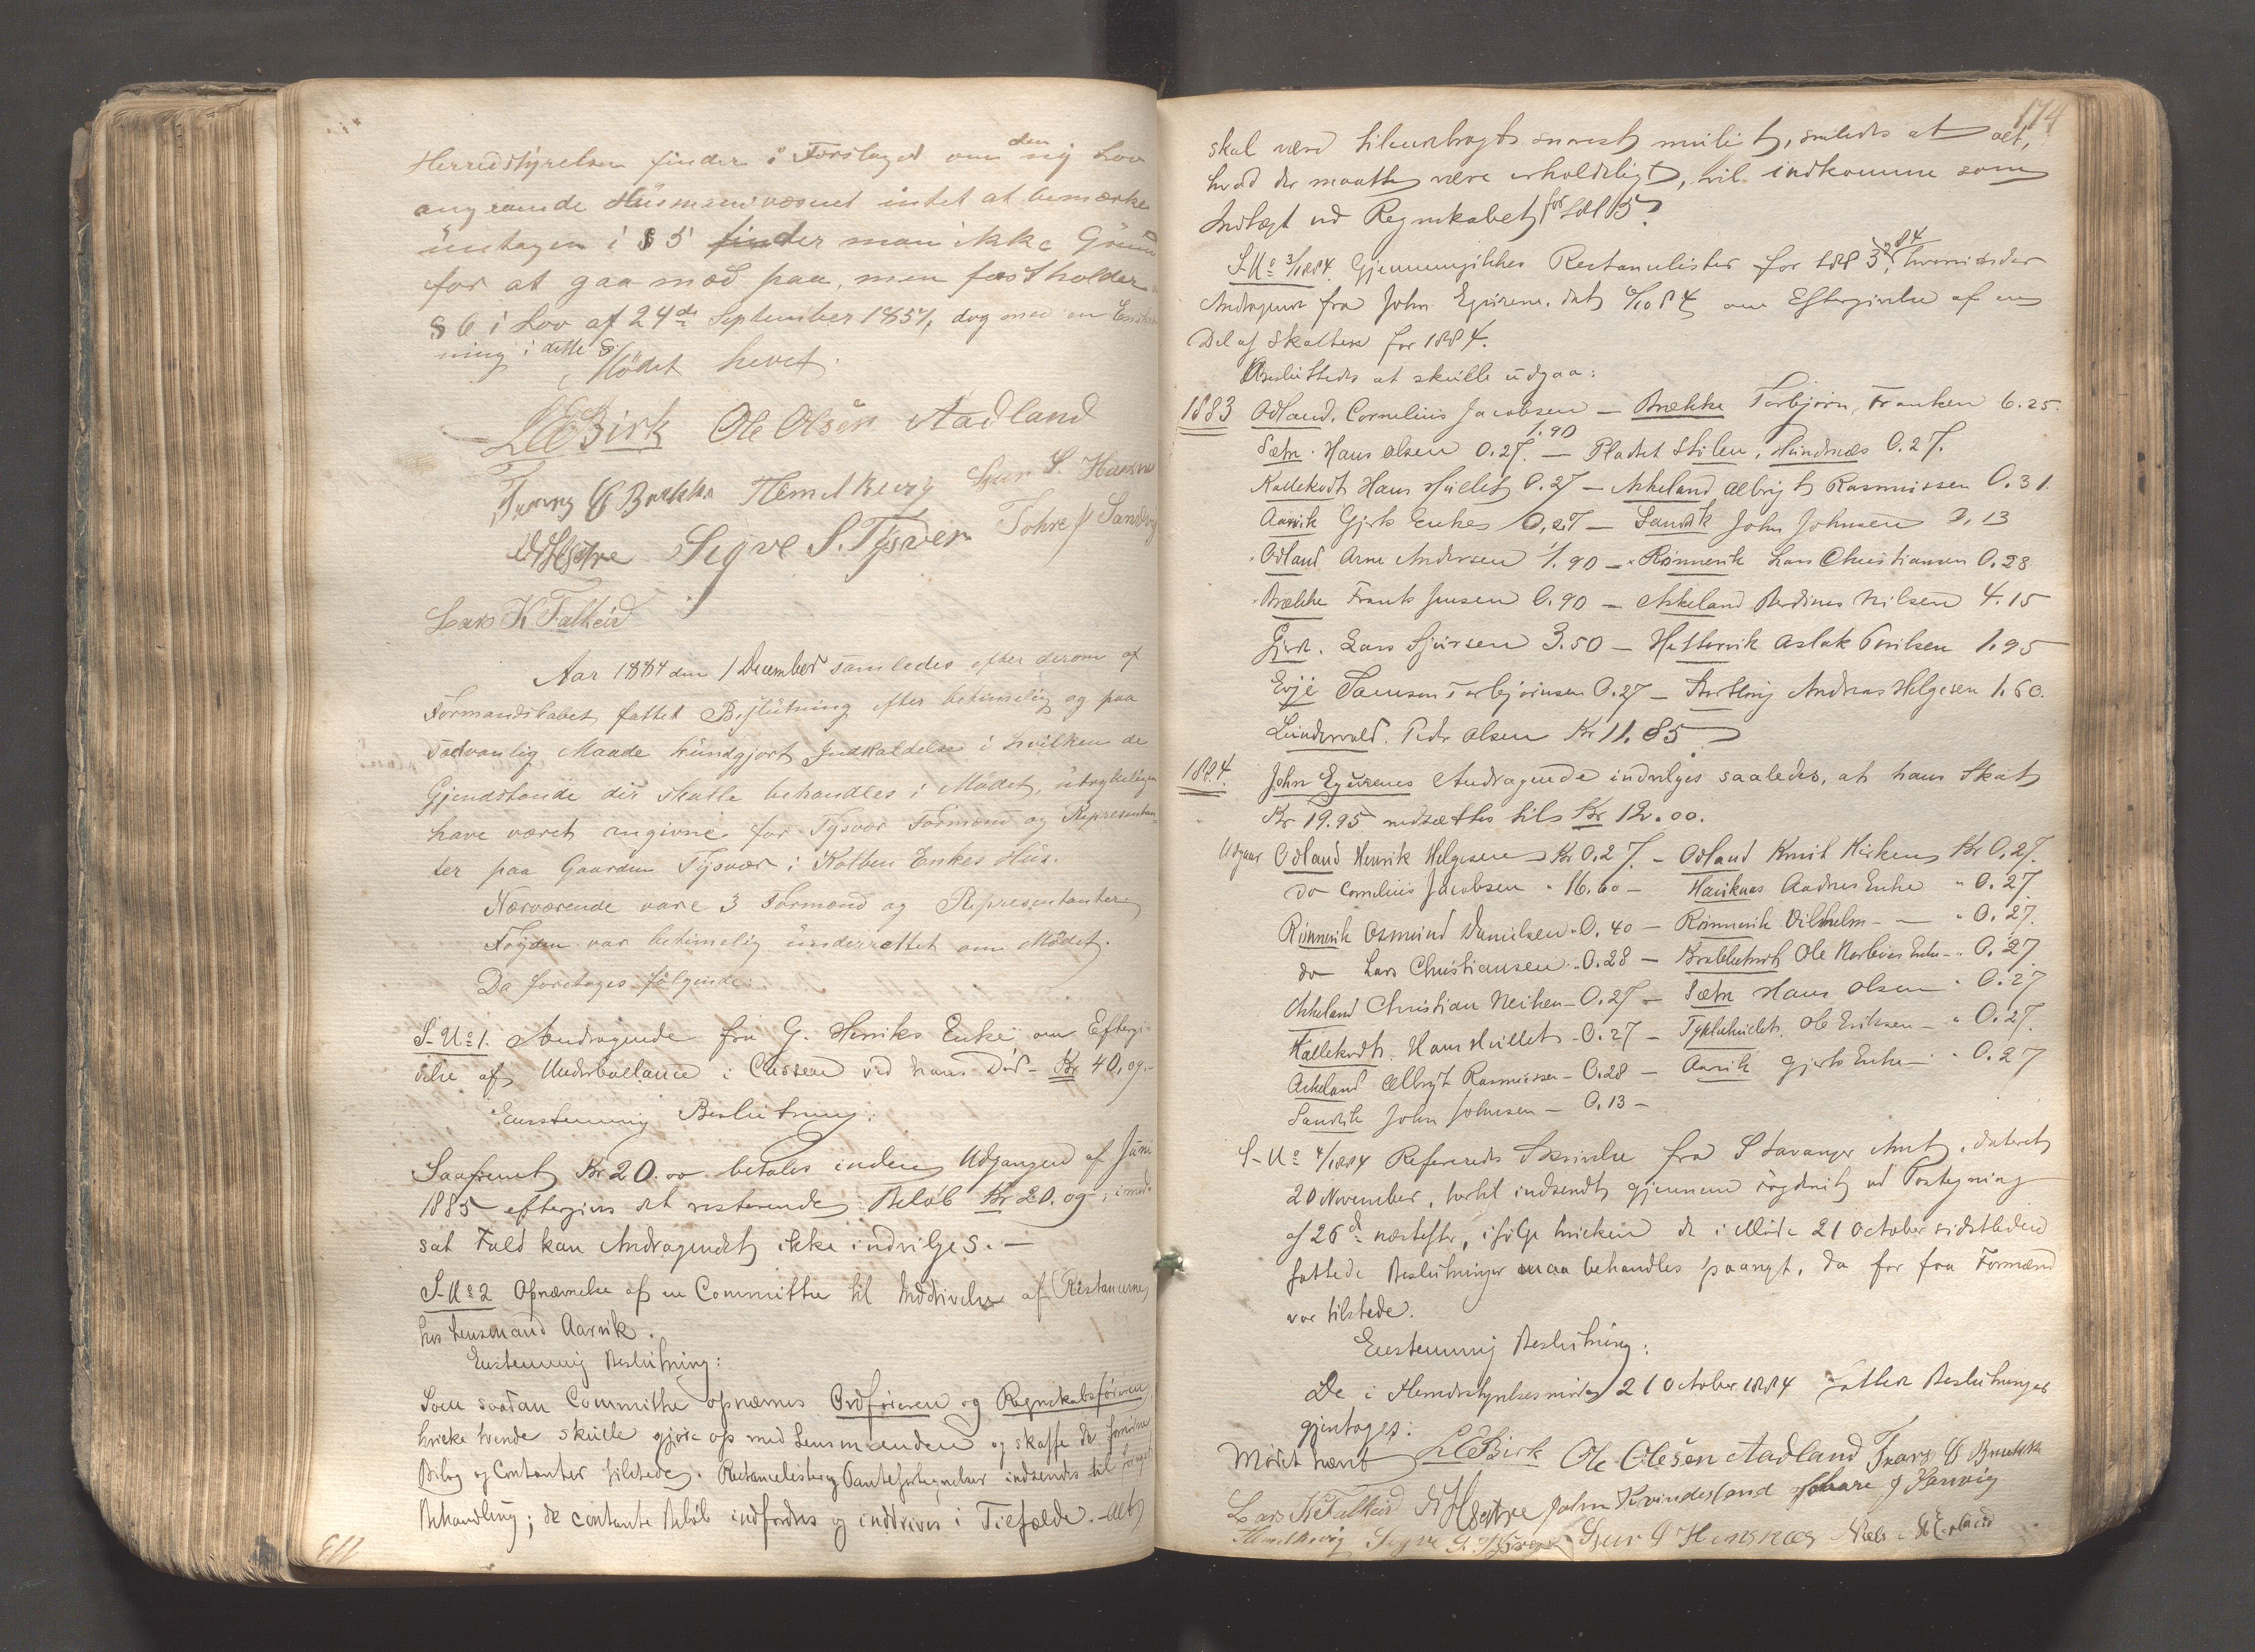 Herredstyrelsen finder i Forslaget om den ny Lov
angaaende Husmandsvæsenet intet at bemærke
undtagen i § 5 finder man ikke Grund
for at gaa med paa, men fastholder
§ 6 i Lov af 24de September 1851, dog med en
ning i dette §.
Mödet hevet.
LCBirk Ole Olsen Aadland
B Brekke Hemelkberg Sjur S.
Sigve S. Tysver Tohre J Sandvig
Lars K Falkeid
Aar 1884 den 1 December samledes efter derom af
Formandskabet fattet Beslutning efter betimelig og paa
sedvanlig Maade kundgjort Indkaldelse i hvilken de
Gjendstande der skulle behandles i Mödet, udtrykkeligen
have været angivne for Tysvær Formænd og Repræsentan-
ter paa Gaarden Tysvær i Kolben Enkes Hus.
Nærværende vare 3 Formænd og Representanter
Fogden var betimelig underrettet om Mödet.
Da foretoges fölgende:
S-No 1. Andragende fra G. Henriks Enke om Eftergi-
velse af Underballance i Cassen ved hans Död - Kr 40,09.-
Eenstemmig Beslutning:
Saafremt Kr 20.00 betales inden Udgangen af Juni
1885 eftergives det resterende Beløb Kr 20.09, i mod-
sat Fald kan Andragendet ikke indvilges. -
S-No 2 Opnævnelse af en Committe til Inddrivelse af Restancerne
hos Lensmand Aarvik.
Eenstemmig Beslutning:
Som saadan Committe opnævnes Ordføreren og Regnskabsføreren,
hvilke tvende skulle gjøre op med Lensmanden og skaffe de fornødne
Bilag og Contanter tilstede. Restancelister og Pantefortegnelser indsendes til
Behandling; de contante Beløb indfordres og inddrives i Tilfælde. - Alt
174
skal være tilveiebragt snarest muligt, saaledes at alt,
hvad der maatte være erholdeligt, vil indkomme som
Indtægt ved Regnskabet for 1885.
S-No 3/1884. Gjennemgikkes Restancelister for 1883 og 84, hvorunder
Andragende fra John Egurene, dat 6/10 84 om Eftergivelse af en
Del af Skatten for 1884.
Besluttedes at skulle udgaa:
1883 Odland. Cornelius Jacobsen — Brekke Torbjørn, Franken 6.25.
1.90
Sætre. Hans Olsen 0.27. — Pladset Stilen, Hundsnæs 0.27.
Kallekodt Hans Hullet 0.27 — Askeland Albrigt Rasmussen 0.31.
Aarvik Gjerts Enkes 0,27 — Sandvik John Johnsen 0,13
Odland Arne Andersen 1.90 — Rönnevik Lars Christiansen 0.28
Brække Frants Jensen 0.90 — Askeland Berdines Nilsen 4.15
Gjerde. Lars Sjursen 3.50 — Hettervik Aslak Eriksen 1.95
Evje Samson Torbjörnsen 0.27 — Andreas Helgesen 1.60.
Peder Olsen Kr 11.85
1884. John Egurenes Andragende indvilges saaledes, at hans Skat
Kr 19.95 nedsættes til Kr 12.00.
Udgaar Odland Henrik Helgesen Kr 0.27. — Odland Knut Kirken Kr 0.27.
do Cornelius Jacobsen " 16.60 — Hauknæs Aadnes Enke " 0.27
Rönnevik Osmund Danielsen " 0.40 — Rönnevik Vilhelm — " 0.27.
do Lars Christiansen " 0.28 — Ole Enke " 0.27
Askeland Christian Neiken — 0.27 — Sætre Hans Olsen " 0.27
Kallekodt. Hans Hullet — 0.27 — Ole Eriksen — " 0.27.
Askeland Albrigt Rasmussen — 0.28 — Aarvik Gjerts Enke — " 0.27
Sandvik John Johnsen — 0.13 —
S-No 4/1884 Refereredes Skrivelse fra Stavanger Amt, dateret
20 November, hertil indsendt gjennem Fogderiet ved Paategning
af 26de næstefter, ifølge hvilken de i Møde 21 October sidstleden
fattede Beslutninger maa behandles paanyt, da for faa Formænd
var tilstede.
Eenstemmig Beslutning:
De i Herredsstyrelsesmöde 21 October 1884 fattede Beslutninger
gjentages:
Mødet hævet LCBirk Ole Olesen Aadland B Brekke
Lars K Falkeid John Kvindesland Tohre J Sanvig
Sigve S. Tysver Sjur S Hunsnæs Niels